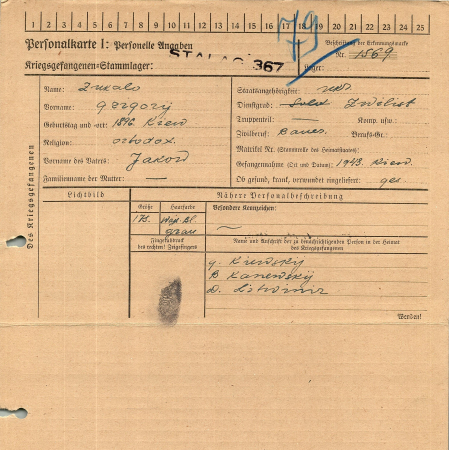 1 2 3 4 5 6 7 8 9 10 11 12 13 14 15 16 17 18 19 20 21 22 23 24 25
Personalkarte I: Personelle Angaben
Kriegsgefangenen-Stammlager:
STALAG 367
79
Beschriftung der Erkennungsmarke
Nr. 1569
Lager:
Des Kriegsgefangenen
Name:
Vorname: Gregorij
Geburtstag und -ort: 1896. Kiew
Religion: ortodox.
Vorname des Vaters: Jakow
Familienname der Mutter: —
Staatsangehörigkeit: ukr.
Dienstgrad: Sold. Zivilist
Truppenteil: — Komp. usw.:
Zivilberuf: Bauer. Berufs-Gr.:
Matrikel Nr. (Stammrolle des Heimatstaates):
Gefangennahme (Ort und Datum): 1943. Kiew.
Ob gesund, krank, verwundet eingeliefert: ges.
Lichtbild
Nähere Personalbeschreibung
Größe
Haarfarbe
Besondere Kennzeichen:
173.
grau
Fingerabdruck
des rechten! Zeigefingers
Name und Anschrift der zu benachrichtigenden Person in der Heimat
des Kriegsgefangenen
g. Kiewskij
B Kanewskij
d.
Werden!